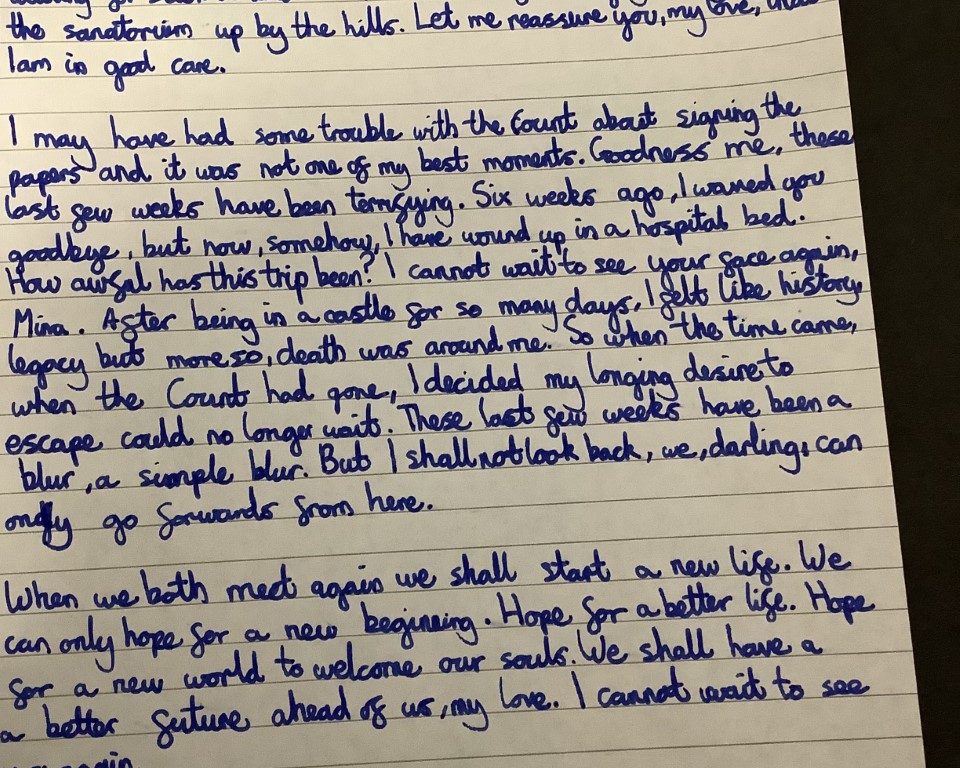 the sanatorium up by the hills. Let me reassure you, my love, that
I am in good care.
I may have had some trouble with the Count about signing the
papers and it was not one of my best moments. Goodness me, these
last few weeks have been terrifying. Six weeks ago, I waved you
goodbye, but now, somehow, I have wound up in a hospital bed.
How awful has this trip been? I cannot wait to see your face again,
Mina. After being in a castle for so many days, I felt like history,
legacy but more so, death was around me. So when the time came,
when the Count had gone, I decided my longing desire to
escape could no longer wait. These last few weeks have been a
blur, a simple blur. But I shall not look back, we, darling, can
only go forwards from here.
When we both meet again we shall start a new life. We
can only hope for a new beginning. Hope for a better life. Hope
for a new world to welcome our souls. We shall have a
a better future ahead of us, my love. I cannot wait to see
again